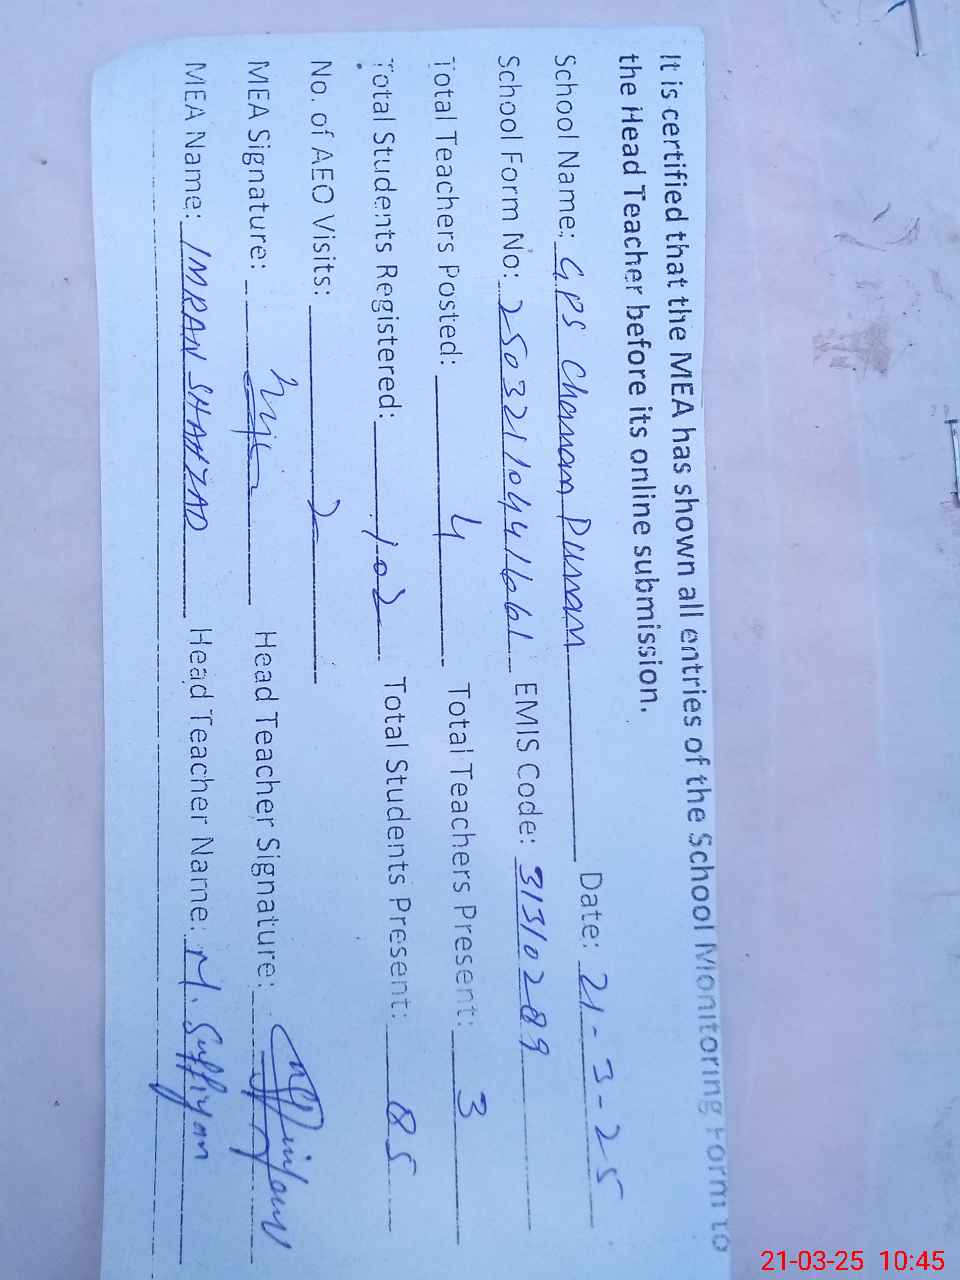 It is certified that the MEA has shown all entries of the School Monitoring Form to
the Head Teacher before its online submission.
School Name: GPS Chanan Punam Date: 21-3-25
School Form No: 250321104416661 EMIS Code: 31310289
Total Teachers Posted: 4 Total Teachers Present: 3
Total Students Registered: 102 Total Students Present: 85
No. of AEO Visits: 2
MEA Signature: Head Teacher Signature:
MEA Name: IMRAN SHAHZAD Head Teacher Name: M. Suffiyan
21-03-25 10:45